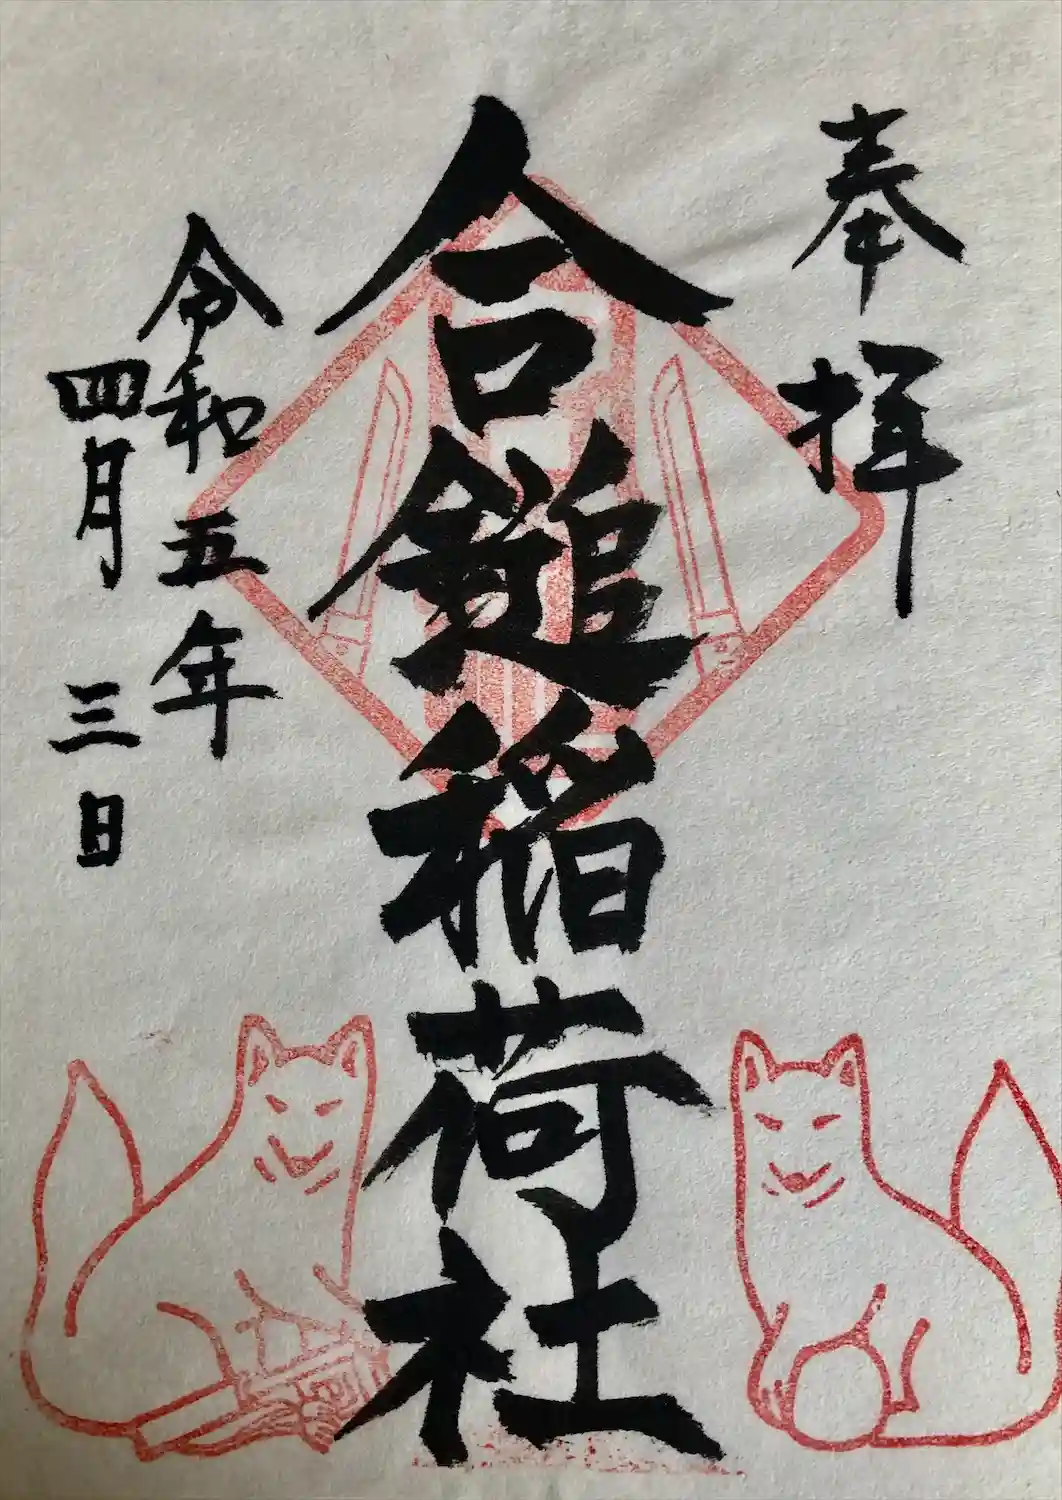 奉拝
合鎚稲荷社
令和五年
四月三日